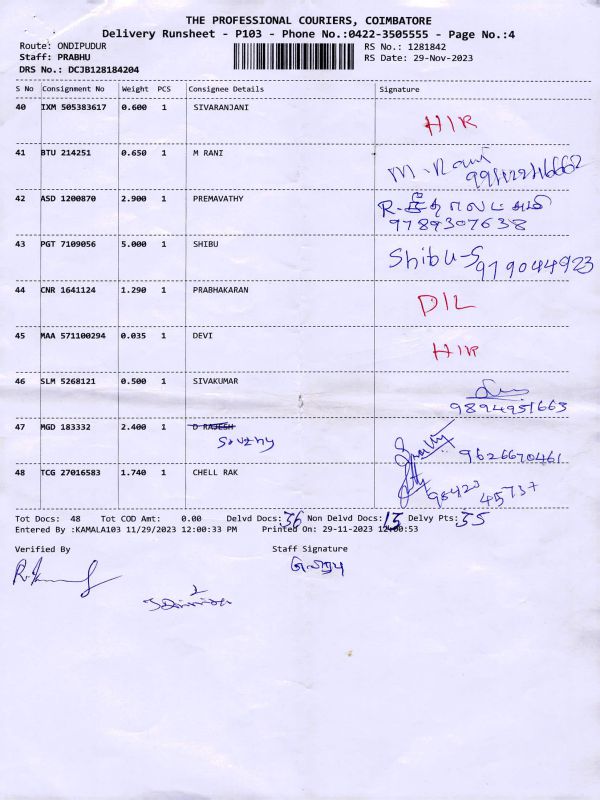 THE PROFESSIONAL COURIERS, COIMBATORE
Delivery Runsheet - P103 - Phone No.:0422-3505555 - Page No.:4
Route: ONDIPUDUR RS No.: 1281842
Staff: PRABHU RS Date: 29-Nov-2023
DRS No.: DCJB128184204
S No Consignment No Weight PCS Consignee Details Signature
40 IXM 505383617 0.600 1 SIVARANJANI
41 BTU 214251 0.650 1 M RANI M. Rani
42 ASD 1200870 2.900 1 PREMAVATHY
9789307638
43 PGT 7109056 5.000 1 SHIBU Shibu-S 979044923
44 CNR 1641124 1.290 1 PRABHAKARAN D/L
45 MAA 571100294 0.035 1 DEVI
46 SLM 5268121 0.500 1 SIVAKUMAR
9894951663
47 MGD 183332 2.400 1 D RAJESH
9626670461
48 TCG 27016583 1.740 1 CHELL RAK
98420 45737
Tot Docs: 48 Tot COD Amt: 0.00 Delvd Docs: 36 Non Delvd Docs: 13 Delvy Pts: 35
Entered By :KAMALA103 11/29/2023 12:00:33 PM Printed On: 29-11-2023 12:00:53
Verified By Staff Signature